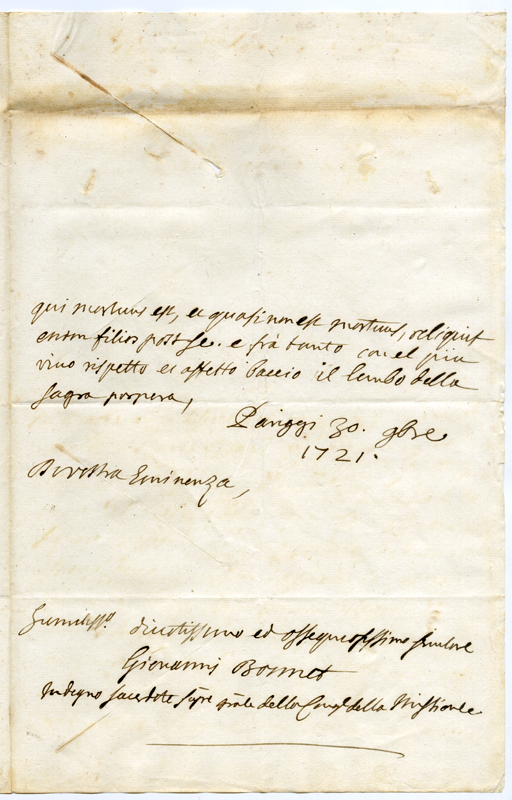 qui mortuus est, et quasi non est mortuus, reliquit
enim filios post se. e frà tanto con el piu
vivo rispetto et affetto baccio il lembo della
sagra porpora,
Pariggi 30. 9bre
1721.
Di vostra Eminenza,
humiliss.º divotissimo ed ossequiosissimo servitore
Giovanni Bonnet
Indegno sacerdote supre gñle della Congñe della Missione